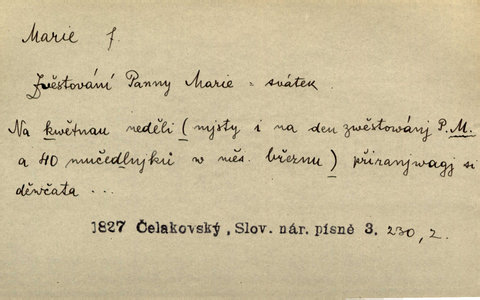 Marie f.
Zvěstování Panny Marie = svátek.
Na kwětnau neděli (njsty i na den zwěstowánj P. M.
a 40 mučedlnjků w měs. březnu) přiranjwagj si
děwčata ...
1827 Čelakovský, Slov. nár. písně 3. 230, 2.